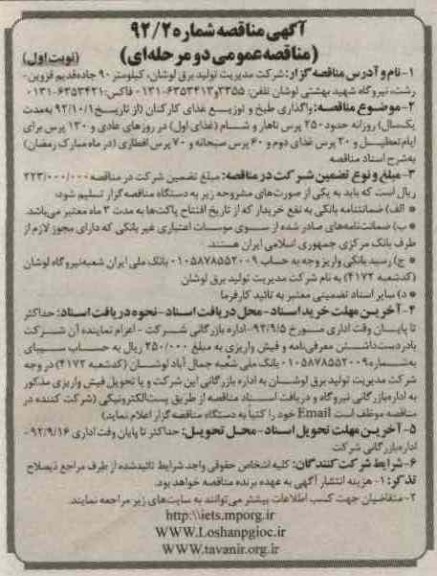 آگهی مناقصه شماره ۹۲/۲
(مناقصه عمومی دو مرحله‌ای)
(نوبت اول)
۱-نام و آدرس مناقصه گزار: شرکت مدیریت تولید برق لوشان، کیلومتر ۹۰ جاده قدیم قزوین-
رشت، نیروگاه شهید بهشتی لوشان تلفن: ۲۳۵۵و۶۳۵۳۴۱۳-۰۱۳۱ فاکس: ۶۳۵۳۴۲۱-۰۱۳۱
۲-موضوع مناقصه: واگذاری طبخ و توزیع غذای کارکنان (از تاریخ ۹۲/۱۰/۱ به‌مدت
یک‌سال) روزانه حدود ۲۵۰ پرس ناهار و شام (غذای اول) در روزهای عادی و ۱۳۰ پرس برای
ایام تعطیل و ۲۰ پرس غذای دوم و ۶۰ پرس صبحانه و ۷۰ پرس افطاری (در ماه مبارک رمضان)
به‌شرح اسناد مناقصه
۳-مبلغ و نوع تضمین شرکت در مناقصه: مبلغ تضمین شرکت در مناقصه ۲۲۳/۰۰۰/۰۰۰
ریال است که باید به یکی از صورت‌های مشروحه زیر به دستگاه مناقصه‌گزار تسلیم شود:
• الف) ضمانتنامه بانکی به نفع خریدار که از تاریخ افتتاح پاکت‌ها به مدت ۳ ماه معتبر می‌باشد.
• ب) ضمانت‌نامه‌های صادر شده از سوی موسات اعتباری غیر بانکی که دارای مجوز لازم از
طرف بانک مرکزی جمهوری اسلامی ایران هستند.
• ج) رسید بانکی واریز وجه به حساب ۰۱۰۵۸۷۸۵۵۲۰۰۹ بانک ملی ایران شعبه نیروگاه لوشان
(کدشعبه ۴۱۷۲) به نام شرکت مدیریت تولید برق لوشان
• د) سایر اسناد تضمینی معتبر به تائید کارفرما
۴-آخرین مهلت خرید اسناد-محل دریافت اسناد-نحوه دریافت اسناد: حداکثر
تا پایان وقت اداری مورخ ۹۲/۹/۵-اداره بازرگانی شرکت - اعزام نماینده آن شرکت
بادردست‌داشتن معرفی‌نامه و فیش واریزی به مبلغ ۲۵۰/۰۰۰ ریال به حساب سیبای
به‌شماره ۰۱۰۵۸۷۸۵۵۲۰۰۹ بانک ملی شعبه جمال آباد لوشان (کدشعبه ۴۱۷۲) در وجه
شرکت مدیریت تولید برق لوشان به اداره بازرگانی این شرکت و یا تحویل فیش واریزی مذکور
به اداره بازرگانی نیروگاه و دریافت اسناد مناقصه از طریق پست‌الکترونیکی (شرکت کننده در
مناقصه موظف است Email خود را کتباً به دستگاه مناقصه گزار اعلام نماید)
۵-آخرین مهلت تحویل اسناد-محل تحویل: حداکثر تا پایان وقت اداری ۹۲/۹/۱۶-
اداره بازرگانی شرکت
۶-شرایط شرکت کنندگان: کلیه اشخاص حقوقی واجد شرایط تائید شده از طرف مراجع ذیصلاح
تذکر: ۱- هزینه انتشار آگهی به عهده برنده مناقصه خواهد بود.
۲-متقاضیان جهت کسب اطلاعات بیشتر می‌توانند به سایت‌های زیر مراجعه نمایند.
http:\\iets.mporg.ir
WWW.Loshanpgioc.ir
WWW.tavanir.org.ir